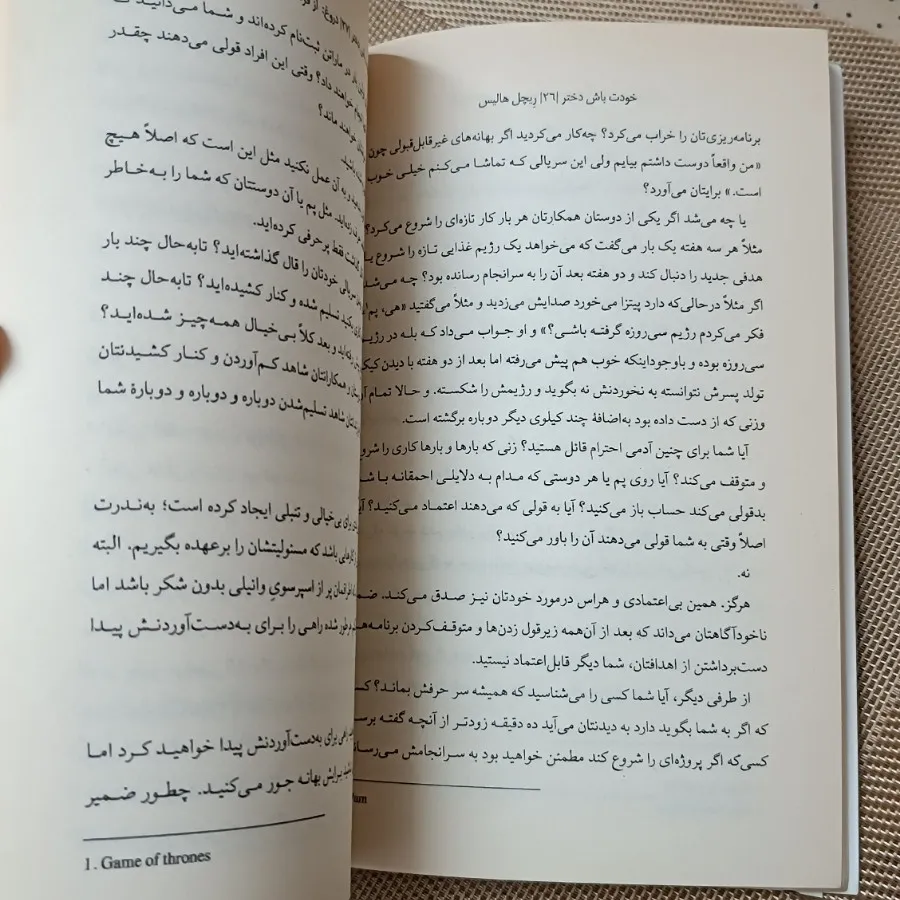 خودت باش دختر |۲۶| ریچل هالیس
برنامه‌ریزی‌تان را خراب می‌کرد؟ چه‌کار می‌کردید اگر بهانه‌های غیرقابل‌قبولی چون
«من واقعاً دوست داشتم بیایم ولی این سریالی که تماشا می‌کنم خیلی خوب
است.» برایتان می‌آورد؟
یا چه می‌شد اگر یکی از دوستان همکارتان هر بار کار تازه‌ای را شروع می‌کرد؟
مثلاً هر سه هفته یک بار می‌گفت که می‌خواهد یک رژیم غذایی تازه را شروع یا
هدفی جدید را دنبال کند و دو هفته بعد آن را به سرانجام رسانده بود؟ چه می‌شد
اگر مثلاً درحالی‌که دارد پیتزا می‌خورد صدایش می‌زدید و مثلاً می‌گفتید «هی، پم
فکر می‌کردم رژیم سی‌روزه گرفته باشی؟» و او جواب می‌داد که بله در رژیم
سی‌روزه بوده و باوجوداینکه خوب هم پیش می‌رفته اما بعد از دو هفته با دیدن کیک
تولد پسرش نتوانسته به نخوردنش نه بگوید و رژیمش را شکسته. و حالا تمام
وزنی که از دست داده بود به‌اضافهٔ چند کیلوی دیگر دوباره برگشته است.
آیا شما برای چنین آدمی احترام قائل هستید؟ زنی که بارها و بارها کاری را
و متوقف می‌کند؟ آیا روی پم یا هر دوستی که مدام به دلایلی احمقانه با
بدقولی می‌کند حساب باز می‌کنید؟ آیا به قولی که می‌دهند اعتماد می‌کنید؟
اصلاً وقتی به شما قولی می‌دهند آن را باور می‌کنید؟
نه.
هرگز. همین بی‌اعتمادی و هراس درمورد خودتان نیز صدق می‌کند.
ناخودآگاهتان می‌داند که بعد از آن‌همه زیرقول زدن‌ها و متوقف‌کردن
دست‌برداشتن از اهدافتان، شما دیگر قابل‌اعتماد نیستید.
از طرفی دیگر، آیا شما کسی را می‌شناسید که همیشه سر حرفش بماند؟
که اگر به شما بگوید دارد به دیدنتان می‌آید ده دقیقه زودتر از آنچه گفته
کسی‌که اگر پروژه‌ای را شروع کند مطمئن خواهید بود به سرانجامش
|۲۷| دروغ:
بار در ماراتن ثبت‌نام کرده‌اند و شما می‌دانید
خواهند داد؟ وقتی این افراد قولی می‌دهند چقدر
خواهند ماند؟
و به آن عمل نکنید مثل این است که اصلاً هیچ
مثل پم یا آن دوستتان که شما را به‌خاطر
فقط پرحرفی کرده‌اید.
سریالی خودتان را قال گذاشته‌اید؟ تابه‌حال چند بار
تسلیم شده و کنار کشیده‌اید؟ تابه‌حال چند
و بعد کلاً بی‌خیال همه‌چیز شده‌اید؟
و همکارانتان شاهد کم‌آوردن و کنار کشیدنتان
شاهد تسلیم‌شدن دوباره و دوباره و دوبارهٔ شما
برای بی‌خیالی و تنبلی ایجاد کرده است؛ به‌ندرت
باشد که مسئولیتشان را برعهده بگیریم. البته
پر از اسپرسوی وانیلی بدون شکر باشد اما
شده راهی را برای به‌دست‌آوردنش پیدا
برای به‌دست‌آوردنش پیدا خواهید کرد اما
برایش بهانه جور می‌کنید. چطور ضمیر
1. Game of thrones